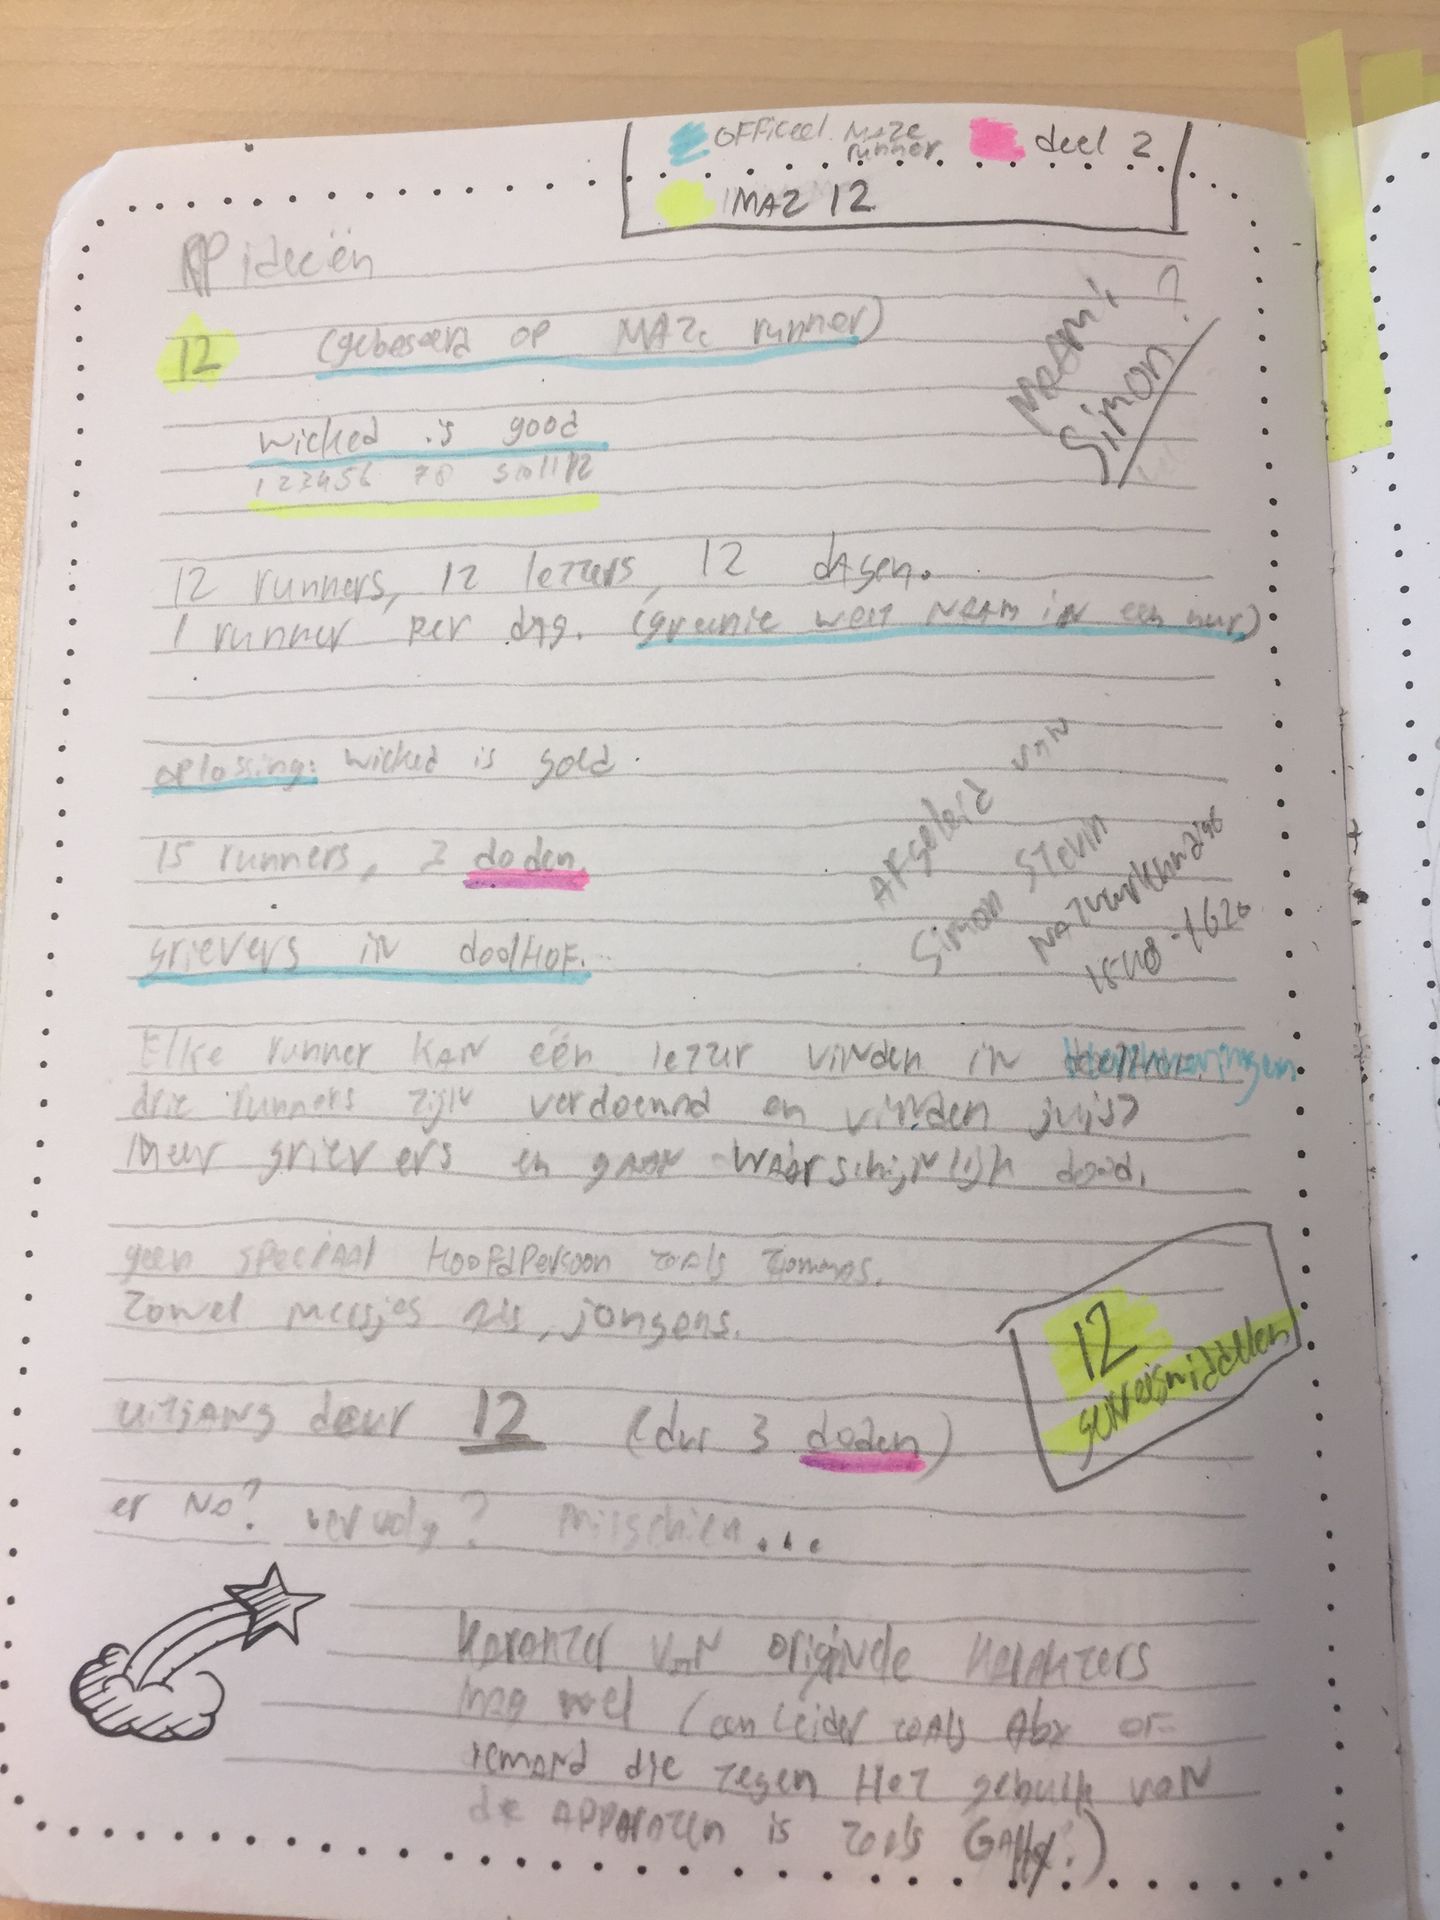 officeel Maze runner
deel 2
IMAZ 12
RP ideeën
12 (gebaseerd op MAZe runner)
NAAM: ?
Simon
wicked is good
123456 78 9101112
12 runners, 12 letters, 12 dagen.
1 runner per dag. (greenie weet NAAM in een uur)
oplossing: wicked is good.
Afgeleid van
Simon Stevin
natuurkundige
1548-1620
15 runners, 2 doden.
grievers in doolHof.
Elke runner kan één letter vinden in
drie runners zijn verdoemd en vinden juist
meer grievers en gaan waarschijnlijk dood.
geen speciaal Hoofdpersoon zoals Thomas.
zowel meisjes als jongens.
12
uitgang deur 12 (dus 3 doden)
er no? vervolg? Misschien...
karakter van originele karakters
mag wel (een leider zoals Aby of
iemand die tegen Het gebuik van
de apparaten is zoals GAlly?)